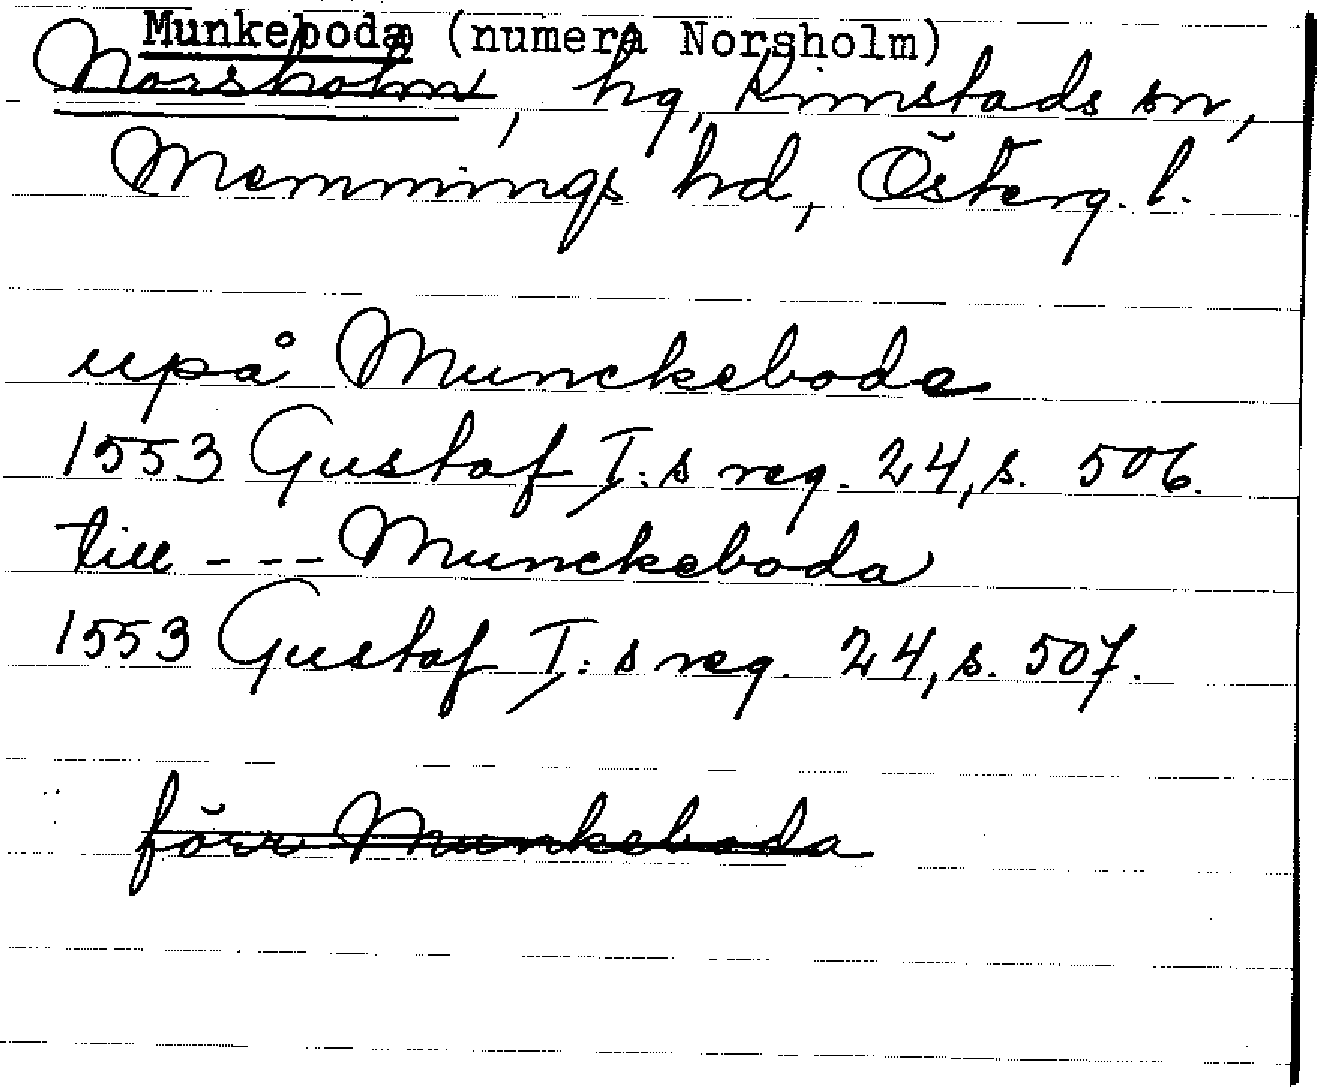 Munkeboda (numera Norsholm)
Norsholm, hg, Kimstads sn,
Memmings hd, Österg. l.
upå Munckeboda
1553 Gustaf I:s reg. 24, s. 506.
till - - - Munckeboda
1553 Gustaf I:s reg. 24, s. 507.
förr Munkeboda